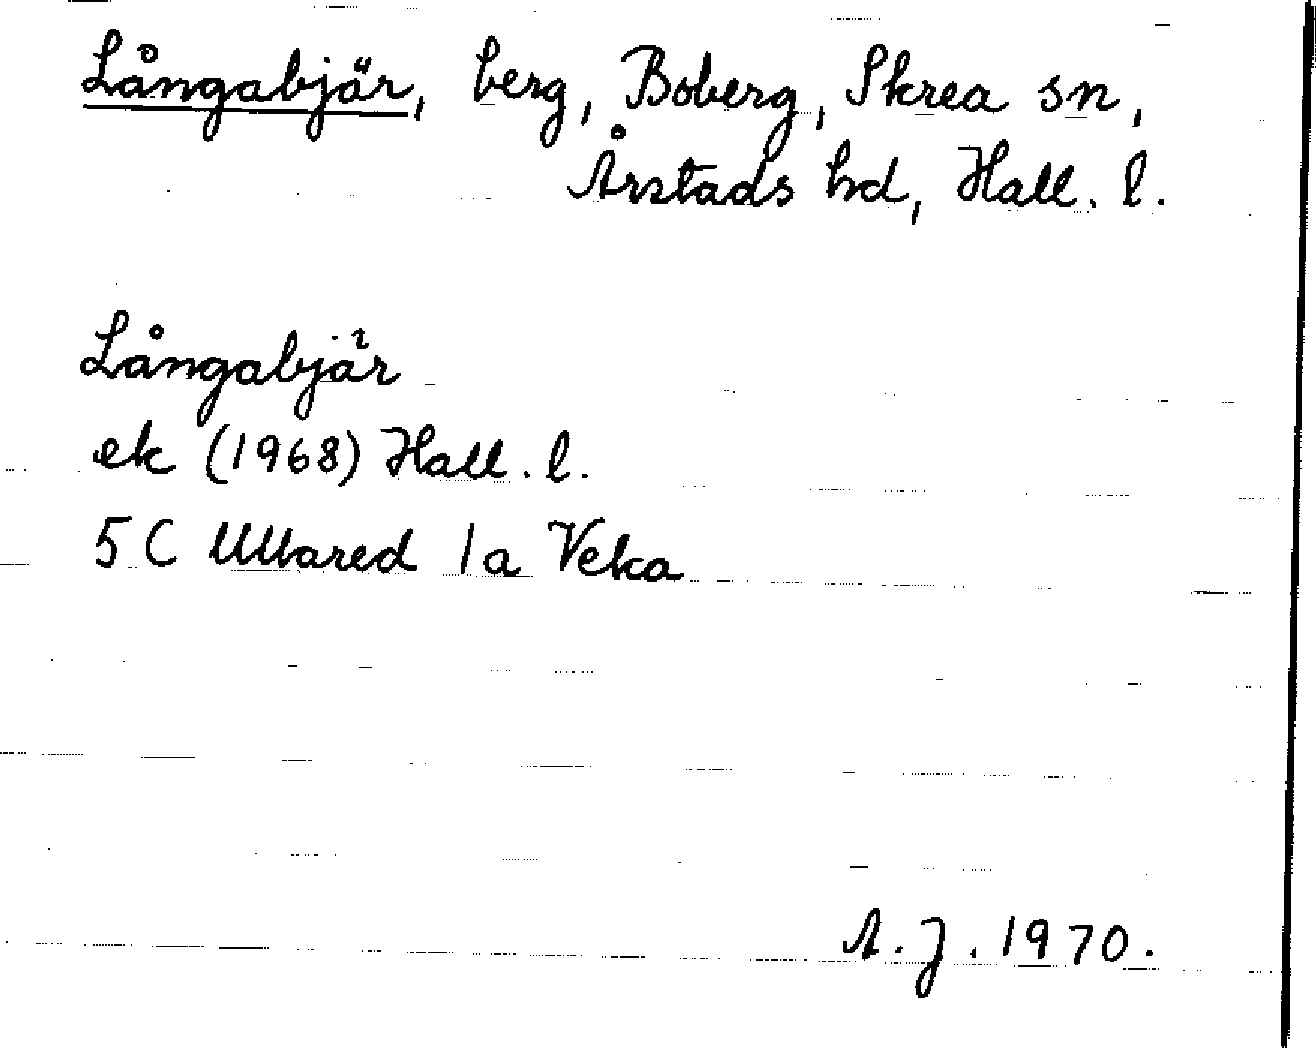 Långabjär, berg, Boberg, Skrea sn,
Årstads hd, Hall. l.
Långabjär
ek (1968) Hall. l.
5 C Ullared 1a Veka
A. J. 1970.